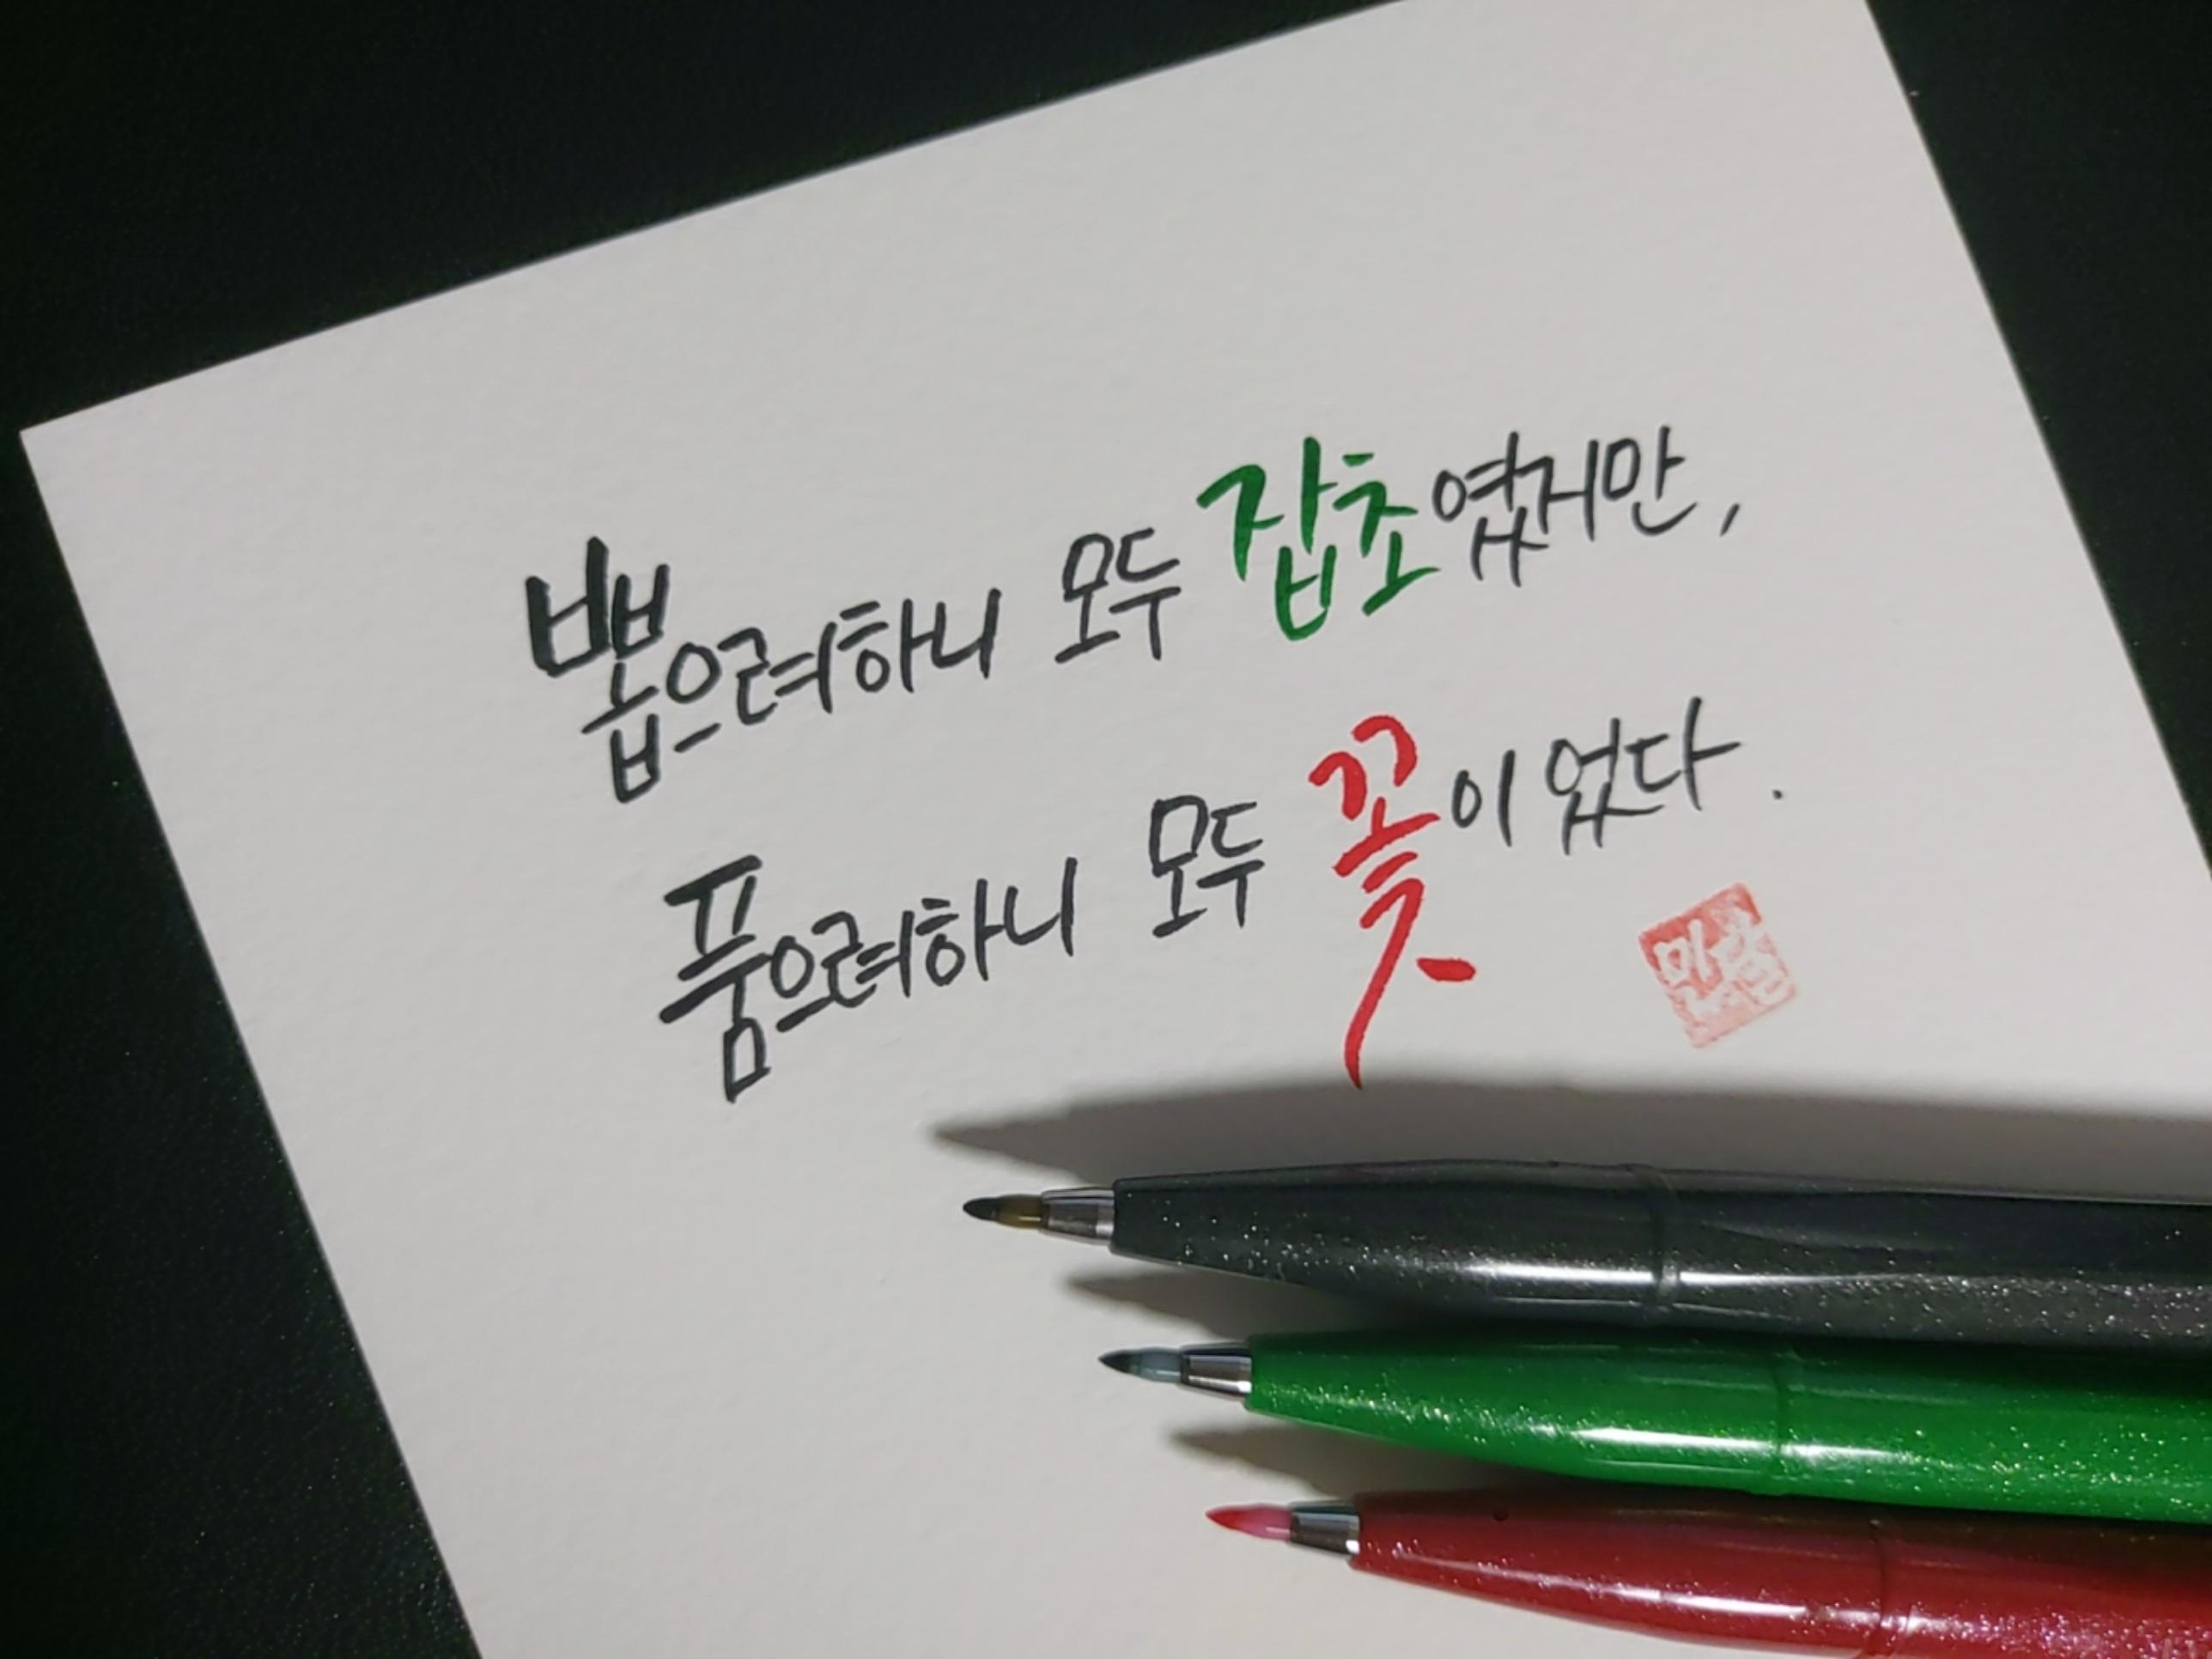 뽑으려하니 모두 잡초였지만,
품으려하니 모두 꽃이었다.